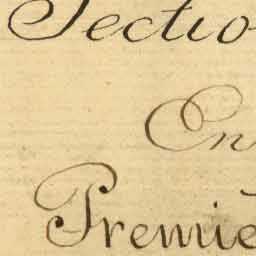 Sectio
En
Premie